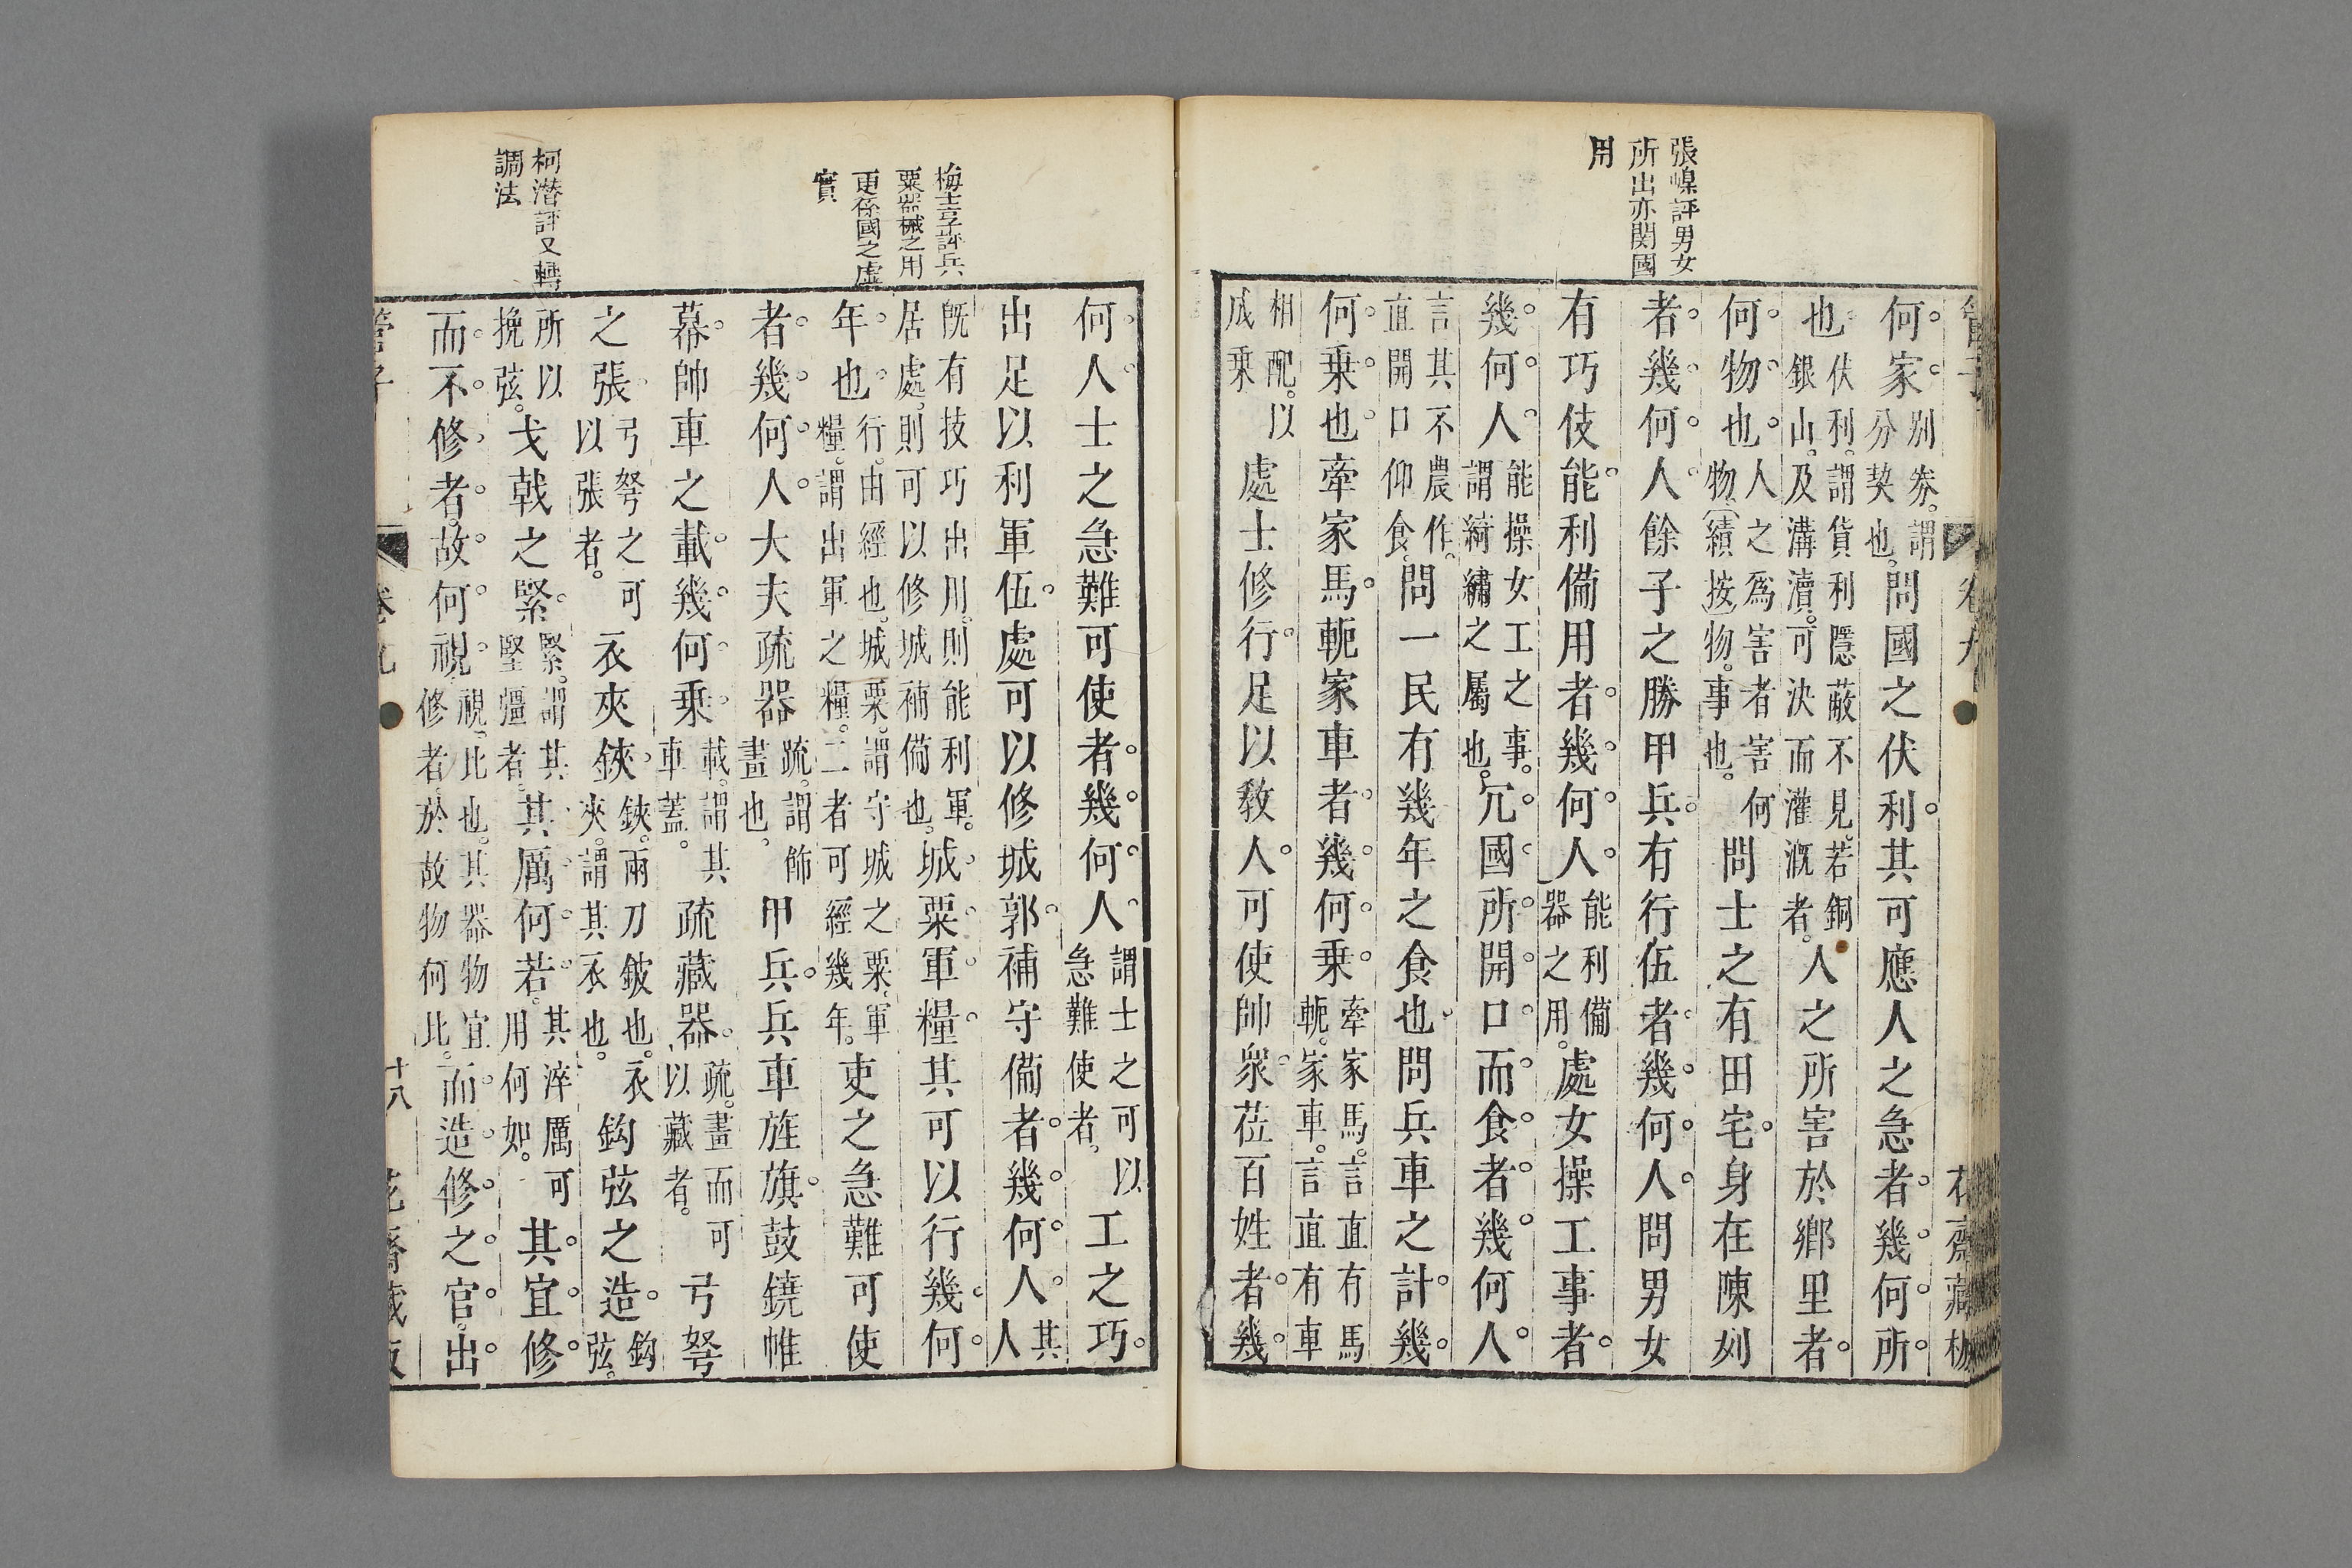 管子 卷九 花齋藏板
張嵲評男女
所出亦関國
用
何家別券。謂
分契也。問國之伏利其可應人之急者幾何所
也伏利。謂貨利隱蔽不見。若銅
銀山。及溝瀆。可決而灌溉者。人之所害於鄉里者
何物也人之爲害者害何
物(績按)物。事也。問士之有田宅身在陳列
者幾何人餘子之勝甲兵有行伍者幾何人問男女
有巧伎能利備用者幾何人能利備
器之用。處女操工事者
幾何人能操女工之事。
謂綺繡之屬也。冗國所開口而食者幾何人
言其不農作。
直開口仰食。問一民有幾年之食也問兵車之計幾
何乗也牽家馬軛家車者幾何乗牽家馬。言直有馬
軛家車。言直有車
相配。以
成乗處士修行足以敎人可使帥衆莅百姓者幾
梅士享評兵
粟器械之用
更係國之虛
實
何人士之急難可使者幾何人謂士之可以
急難使者。工之巧
出足以利軍伍處可以修城郭補守備者幾何人其
人
旣有技巧出用。則能利軍。
居處。則可以修城補備也。城粟軍糧其可以行幾何
年也行。由經也。城粟。謂守城之粟。軍
糧。謂出軍之糧。二者可經幾年。吏之急難可使
者幾何人大夫疏器疏。謂飾
畫也。甲兵兵車旌旗鼓鐃帷
幕帥車之載幾何乗載。謂其
車蓋。疏藏器疏。畫而可
以藏者。弓弩
之張弓弩之可
以張者。衣夾鋏鋏。兩刀鈹也。衣
夾。謂其衣也。鈎弦之造鈎
弦。
柯潛評又轉
調法
所以
挽弦。戈戟之緊緊。謂其
堅彊者。其厲何若其淬厲可
用何如。其宜修
而不修者故何視視。比也。其器物宜
修者。於故物何比。而造修之官出
管子 卷九 十八 花齋藏板